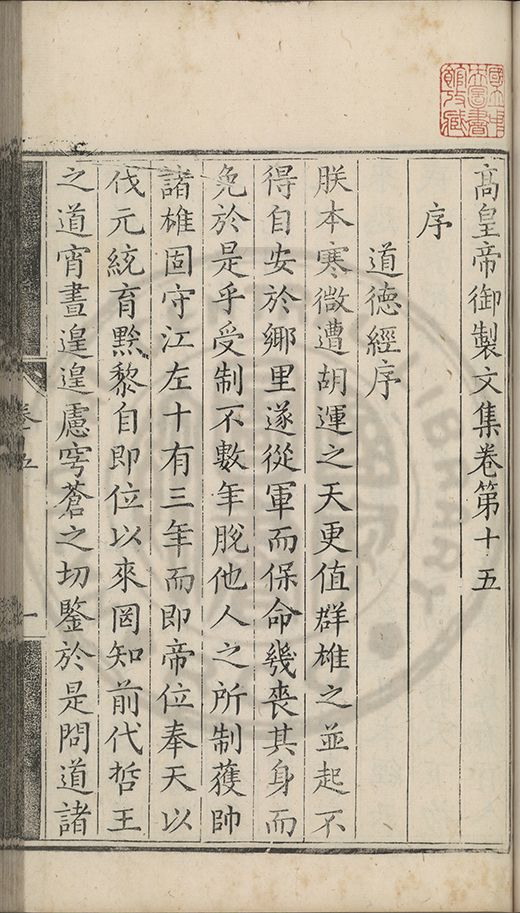 高皇帝御製文集卷第十五
序
道德經序
朕本寒微遭胡運之天更值群雄之並起不
得自安於鄉里遂從軍而保命幾喪其身而
免於是乎受制不數年脫他人之所制獲帥
諸雄固守江左十有三年而即帝位奉天以
伐元統育黔黎自即位以來罔知前代哲王
之道宵晝遑遑慮穹蒼之切鑒於是問道諸
一